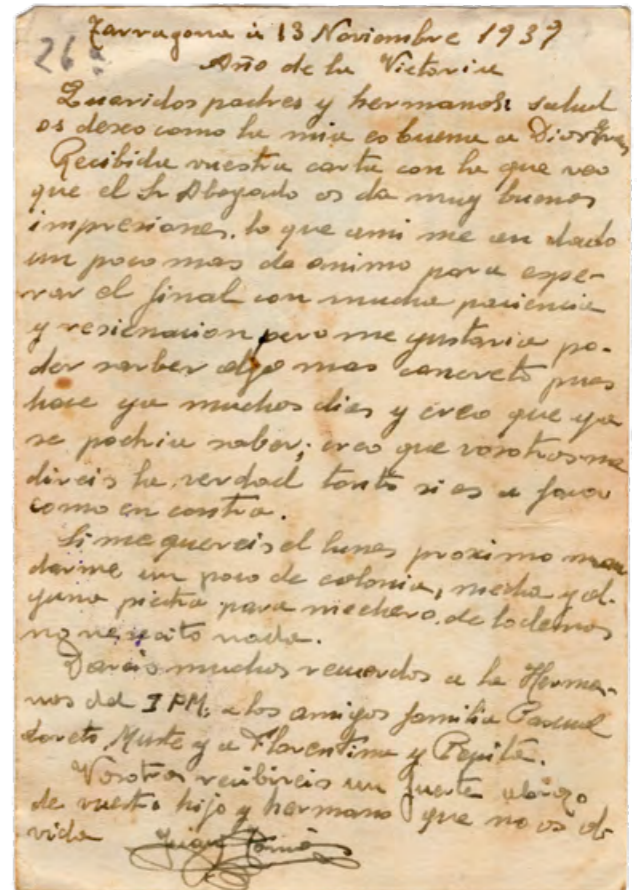 26
Tarragona a 13 Noviembre 1939
Año de la Victoria
Queridos padres y hermanos: salud
os deseo como la mia es buena a Dios
Recibida vuestra carta con la que veo
que el Sr Abogado os da muy buenas
impresiones. lo que ami me an dado
un poco mas de animo para espe-
rar el final con mucha paciencia
y resicnacion pero me gustaria po-
der sarber algo mas concreto pues
hace ya muchos dias y creo que ya
se podria saber; creo que vosotros me
direis la verdad tanto si es a favor
como en contra.
Si me quereis el lunes proximo man
darme un poco de colonia, mecha y al-
guna piedra para mechero. de lodemas
no necesito nada.
Dareis muchos recuerdos a la Herma-
nos del IPM, a los amigos familia Pascual
Loreto, y a Florentina y Pepita.
Vosotros recibireis un fuerte abrazo
de vuestro hijo y hermano que no os ol
vida Juan